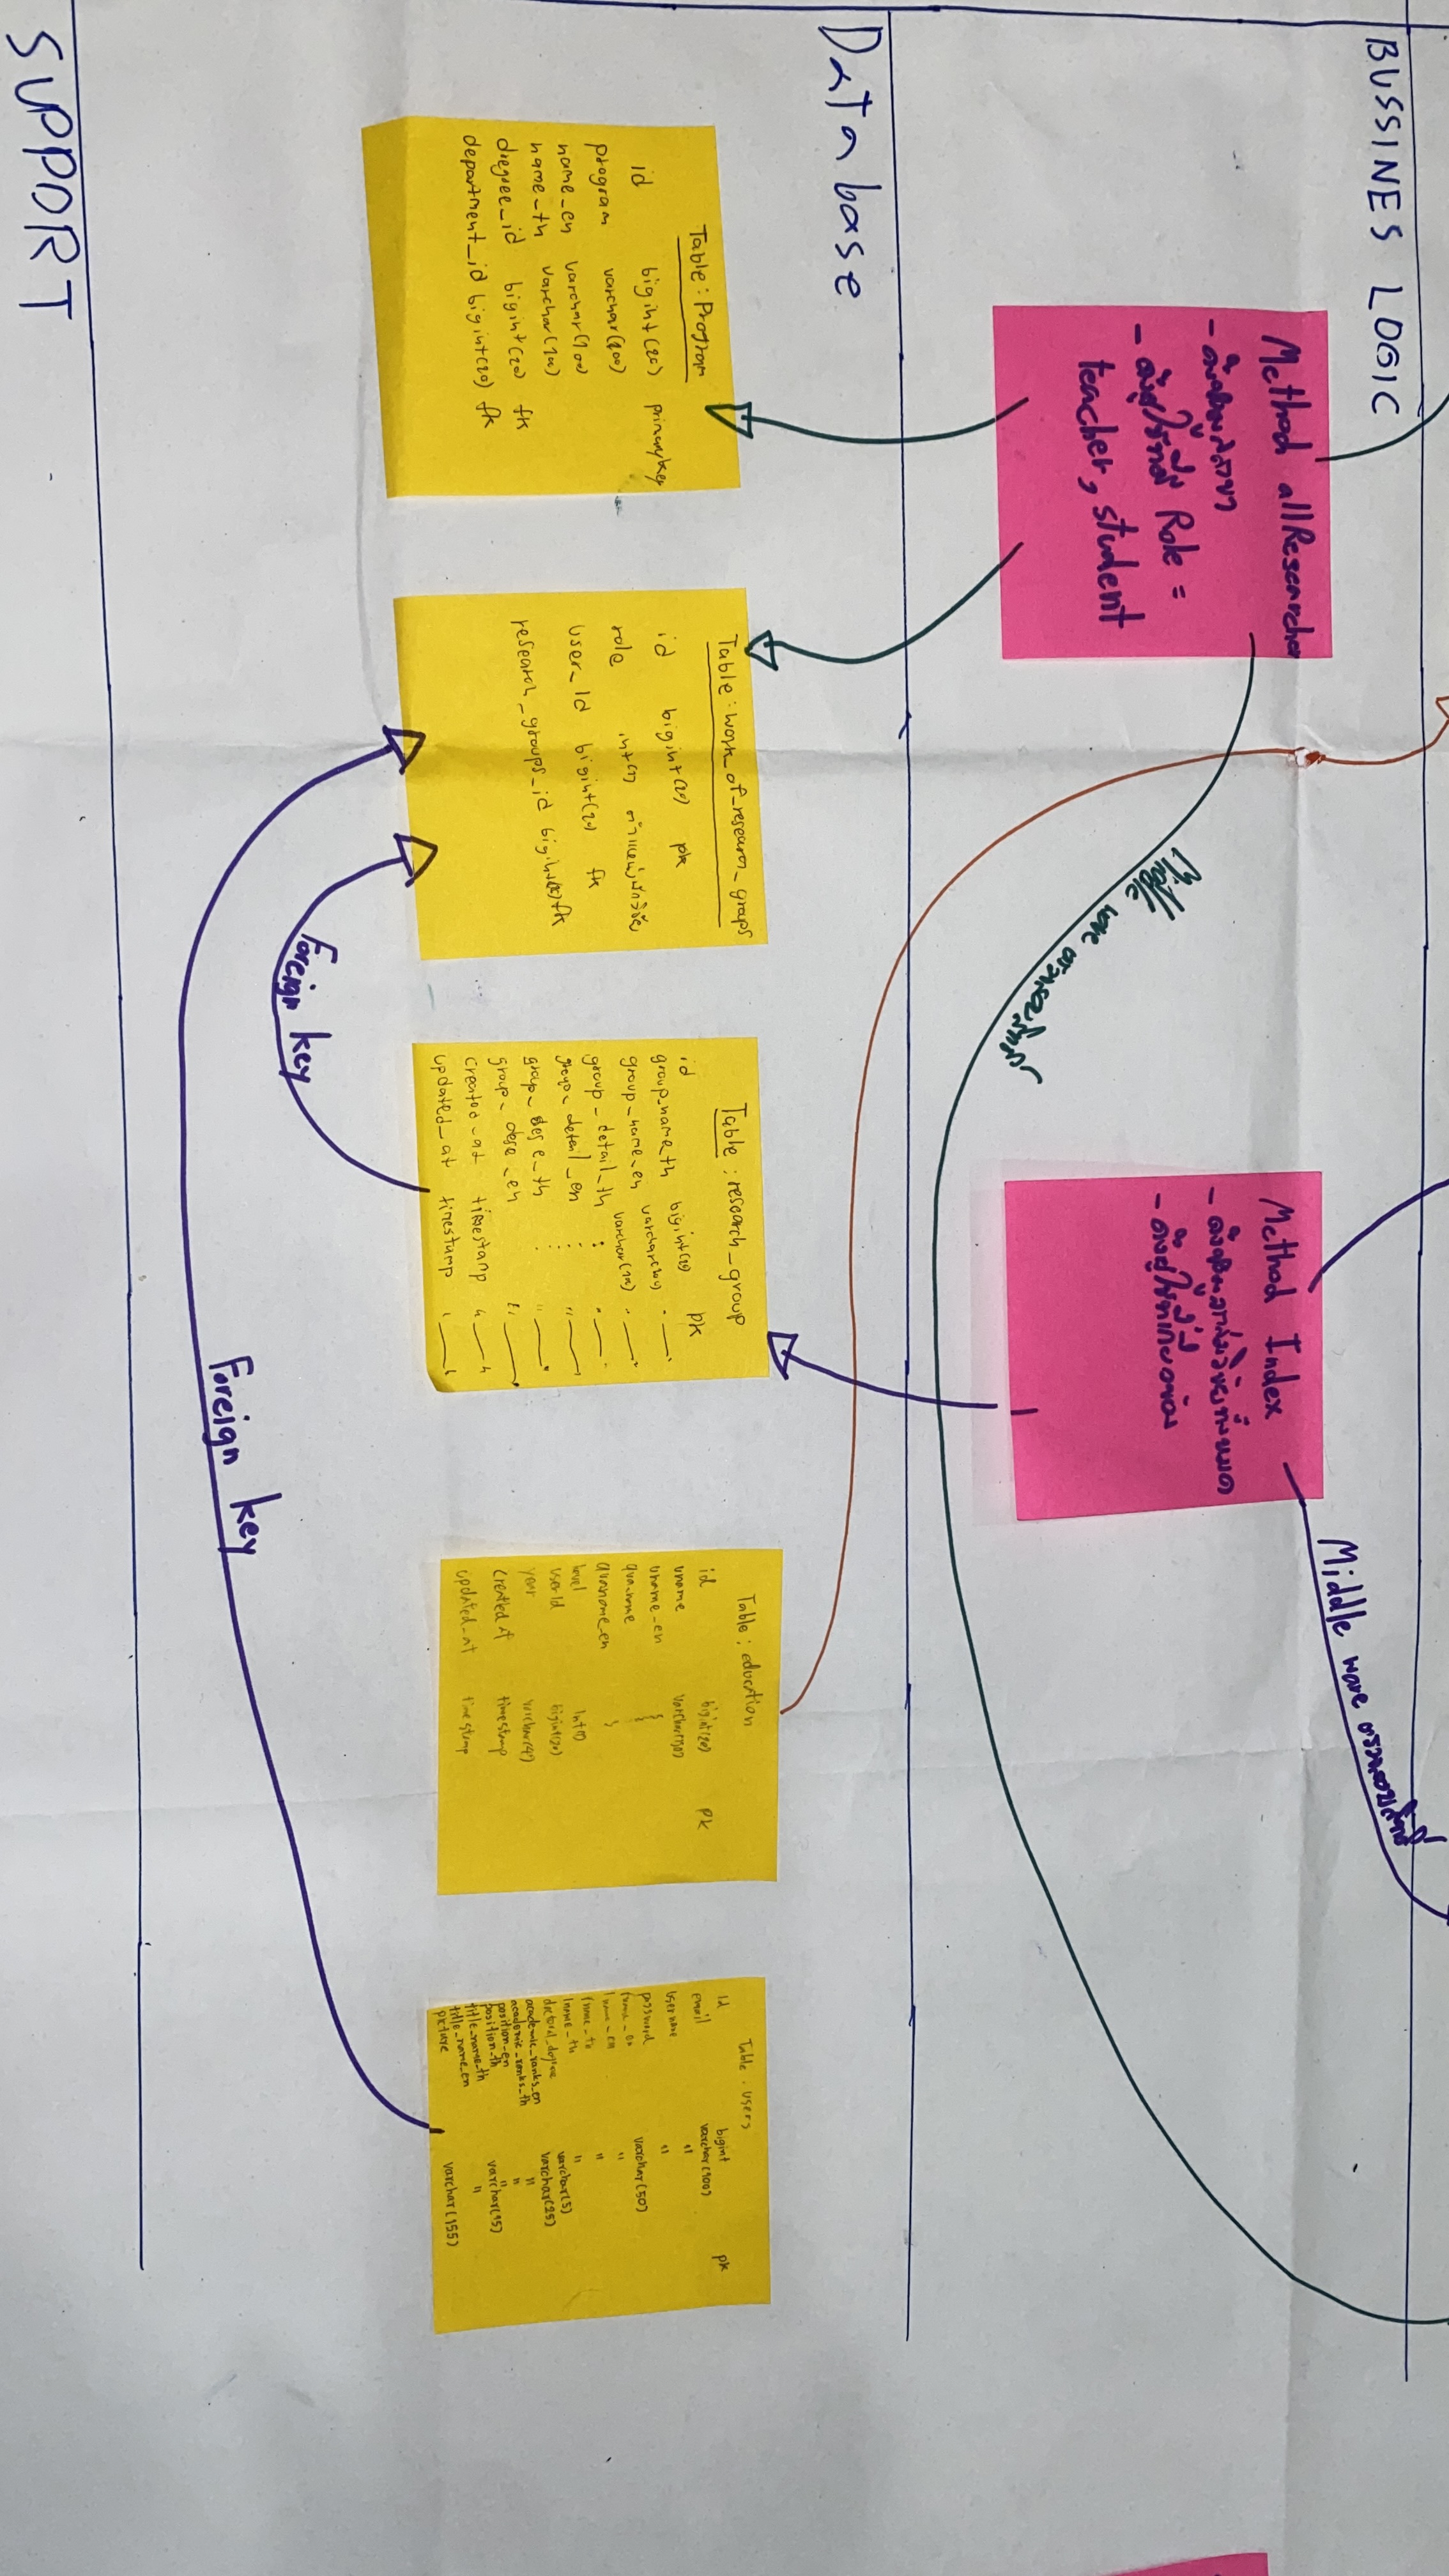 BUSSINES LOGIC
Method allResearcher
- ดึงข้อมูลสาขา
- ดึงผู้ใช้ที่มี Role =
teacher, student
Middle ware ตรวจสอบสิทธิ์
Method Index
- ดึงข้อมูลกลุ่มวิจัยทั้งหมด
- ดึงผู้ใช้ที่เกี่ยวข้อง
Middle ware ตรวจสอบสิทธิ์
Database
Table : Program
id bigint(20) primary key
program varchar(200)
name_en varchar(100)
name_th varchar(100)
degree_id bigint(20) fk
department_id bigint(20) fk
Table : work_of_research_groups
id bigint(20) pk
role int(1) ตำแหน่งนักวิจัย
user_id bigint(20) fk
research_groups_id bigint(20) fk
Foreign key
Table : research_group
id bigint(20) pk
group_name_th varchar
group_name_en varchar
group_detail_th
group_detail_en
group_dese_th
group_dese_en
created_at timestamp
updated_at timestamp
Foreign key
Table : education
id bigint(20) pk
uname varchar
uname_en
qua_name
quaname_en
level int(1)
userId bigint(20)
year varchar(4)
created_At timestamp
updated_At timestamp
Table : users
id bigint pk
email varchar(100)
username "
password "
fname_en varchar(50)
lname_en "
fname_th "
lname_th "
doctoral_degree varchar(5)
academic_ranks_en varchar(25)
academic_ranks_th "
position_en "
position_th varchar(45)
title_name_th "
title_name_en "
picture varchar(155)
SUPPORT